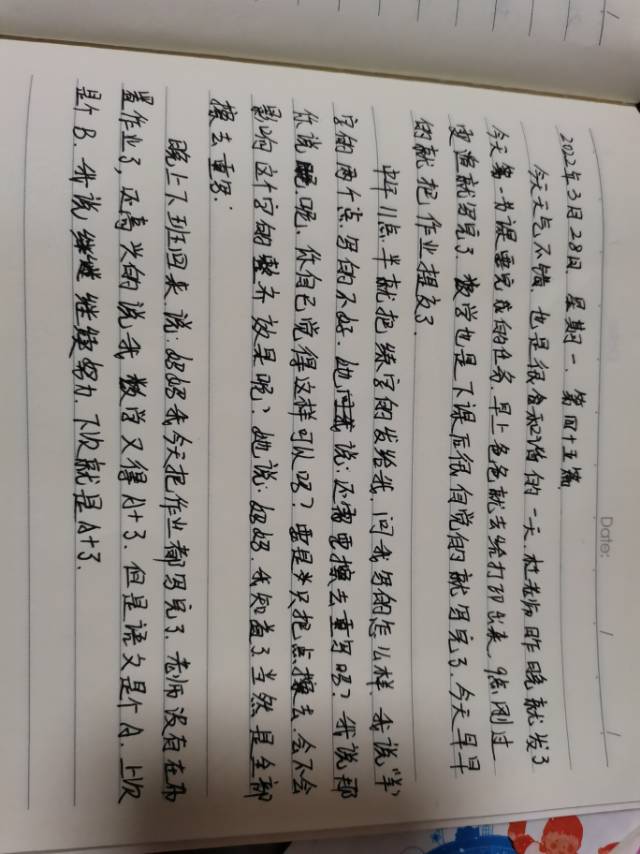 Date:
2022年3月28日 星期一、第四十五篇
今天天气不错、也是很合和谐的一天、杜老师昨晚就发了
今天第一节课要完成的任务、早上爸爸就去给打印出来、9点刚过
更指就写完了、数学也是下课后很自觉的就写完了、今天早早
的就把作业提交了.
中午11点半就把练字的发给我、问我写的怎么样、我说"羊"
字的两个点写的不好、她问我说:还需要擦去重写吗?我说那
你说呢、你自己觉得这样可以吗?要是只把点擦去会不会
影响这个字的整齐效果呢?她说:妈妈、我知道了当然是全部
擦去重写.
晚上下班回来说:妈妈我今天把作业都写完了、老师没有在布
置作业了、还高兴的说我数学又得A+3、但是语文是个A、上次
是个B、我说继续努力、下次就是A+3.